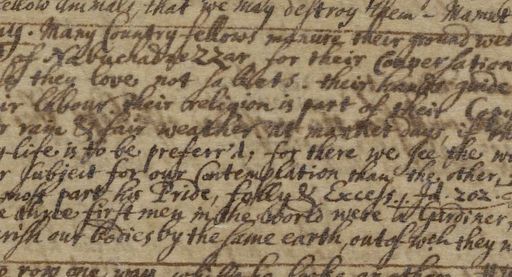 fellow animals, that we may destroy them - 
Many Country fellows manure their ground
of Nabuchadnezzar for their Conversation
they love not their hands guide
labour their religion is part of their
rain & fair weather at market days, if
life is to be preferr'd, for there we see the
subject for our Contemplation than the other,
most part his Pride, folly & Excess, Id 202
three first men in the World were a Gardiner,
our bodies by the same earth, out of wch they
one way